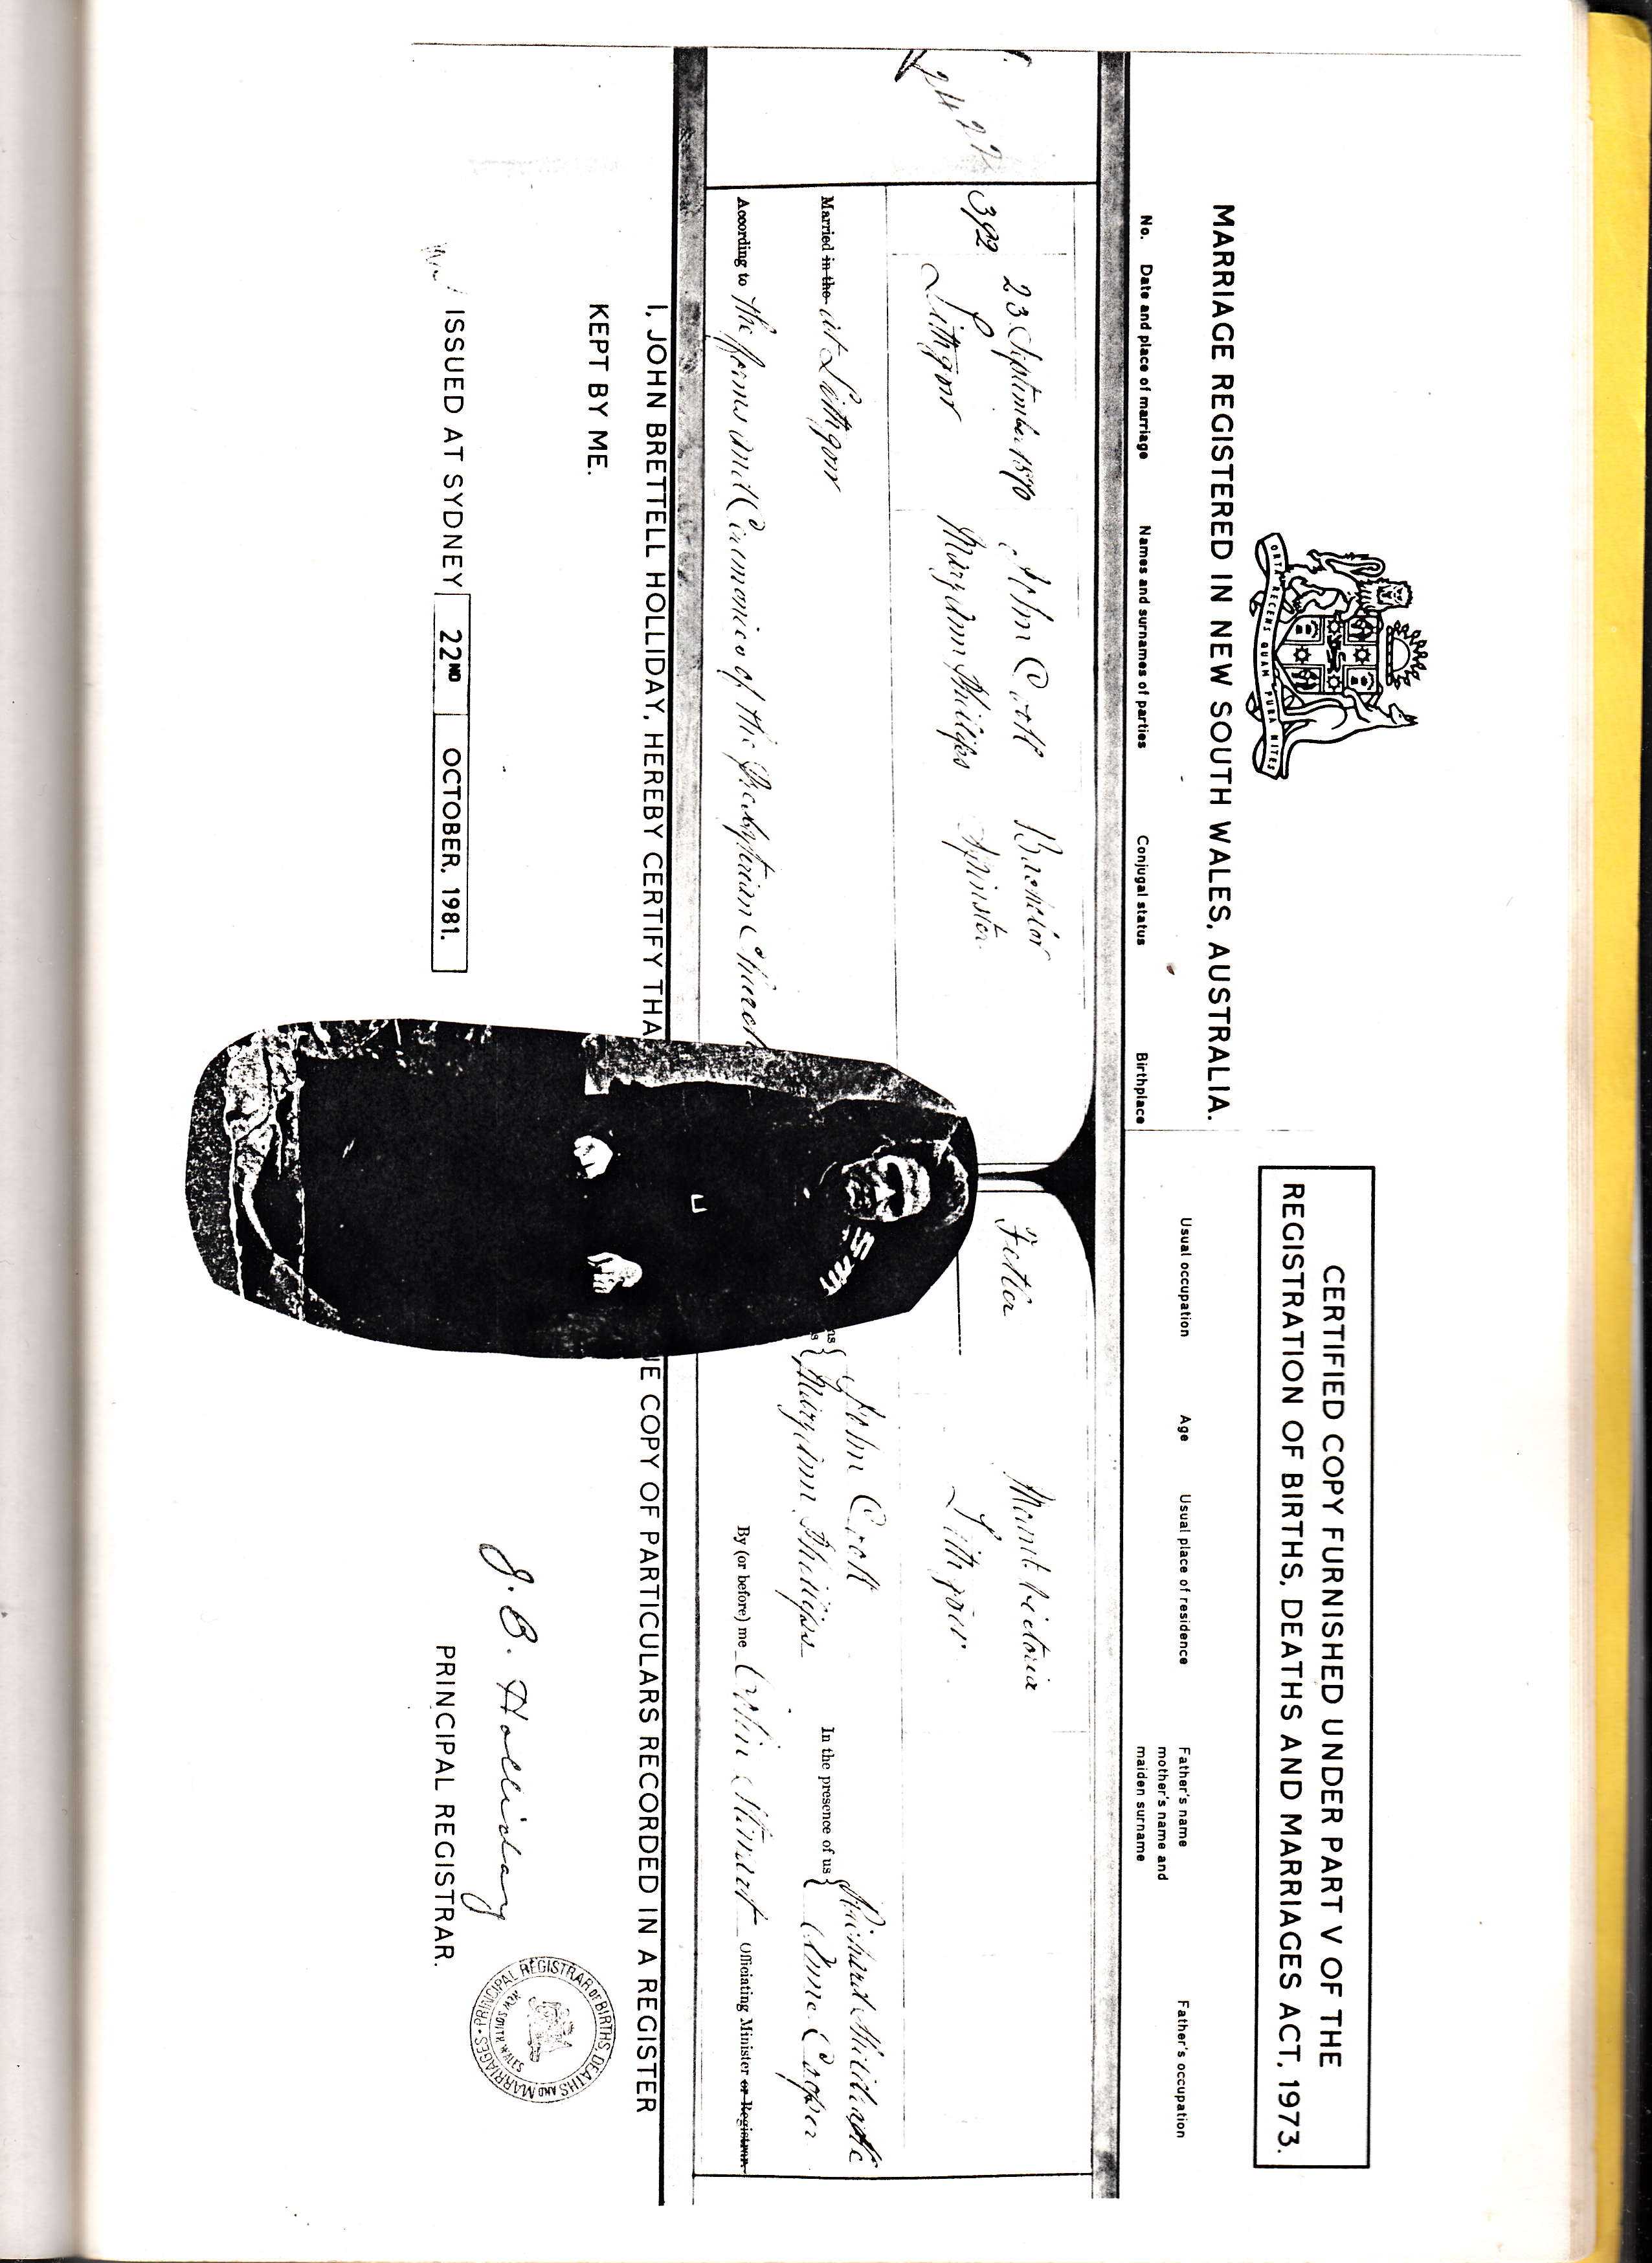 ORTA RECENS QUAM PURA NITES
CERTIFIED COPY FURNISHED UNDER PART V OF THE
REGISTRATION OF BIRTHS, DEATHS AND MARRIAGES ACT, 1973.
MARRIAGE REGISTERED IN NEW SOUTH WALES, AUSTRALIA.
No. Date and place of marriage Names and surnames of parties Conjugal status Birthplace Usual occupation Age Usual place of residence Father's name mother's name and maiden surname Father's occupation
2422
392 23 September 1870 John Cott Bachelor Fetler Mount Victoria
Lithgow Maryann Phillips Spinster Lithgow
Married in the at Lithgow
John Cott
Maryann Phillips
In the presence of us
Richard
Anne Cooper
According to the forms and Ceremonies of the Presbyterian Church
By (or before) me Colin Stewart Officiating Minister or Registrar
I, JOHN BRETTELL HOLLIDAY, HEREBY CERTIFY THA UE COPY OF PARTICULARS RECORDED IN A REGISTER
KEPT BY ME.
ISSUED AT SYDNEY 22ND OCTOBER, 1981.
J. B. Holliday
PRINCIPAL REGISTRAR.
PRINCIPAL REGISTRAR OF BIRTHS, DEATHS AND MARRIAGES
NEW SOUTH WALES